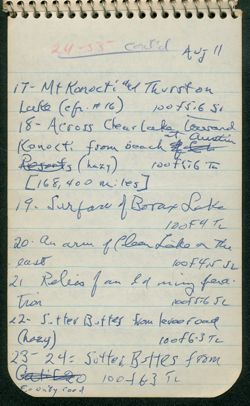 24-55 cont'd
Aug 11
17- Mt Konocti and Thurston
Lake (cfr. #16) 100 f 5.6 SL
18- Across Clear Lake toward
Konocti from beach at Austin
Resorts (hazy) 100 f 5.6 TL
[168,400 miles]
19. Surface of Borax Lake
100 f 4 TL
20- An arm of Clear Lake on the
east 100 f 4.5 SL
21 Relics of an old mining
100 f 5.6 SL
22- Sutter Buttes from levee road
(hazy) 100 f 6.3 TL
23-24= Sutter Buttes from
100 f 6.3 TL
County road